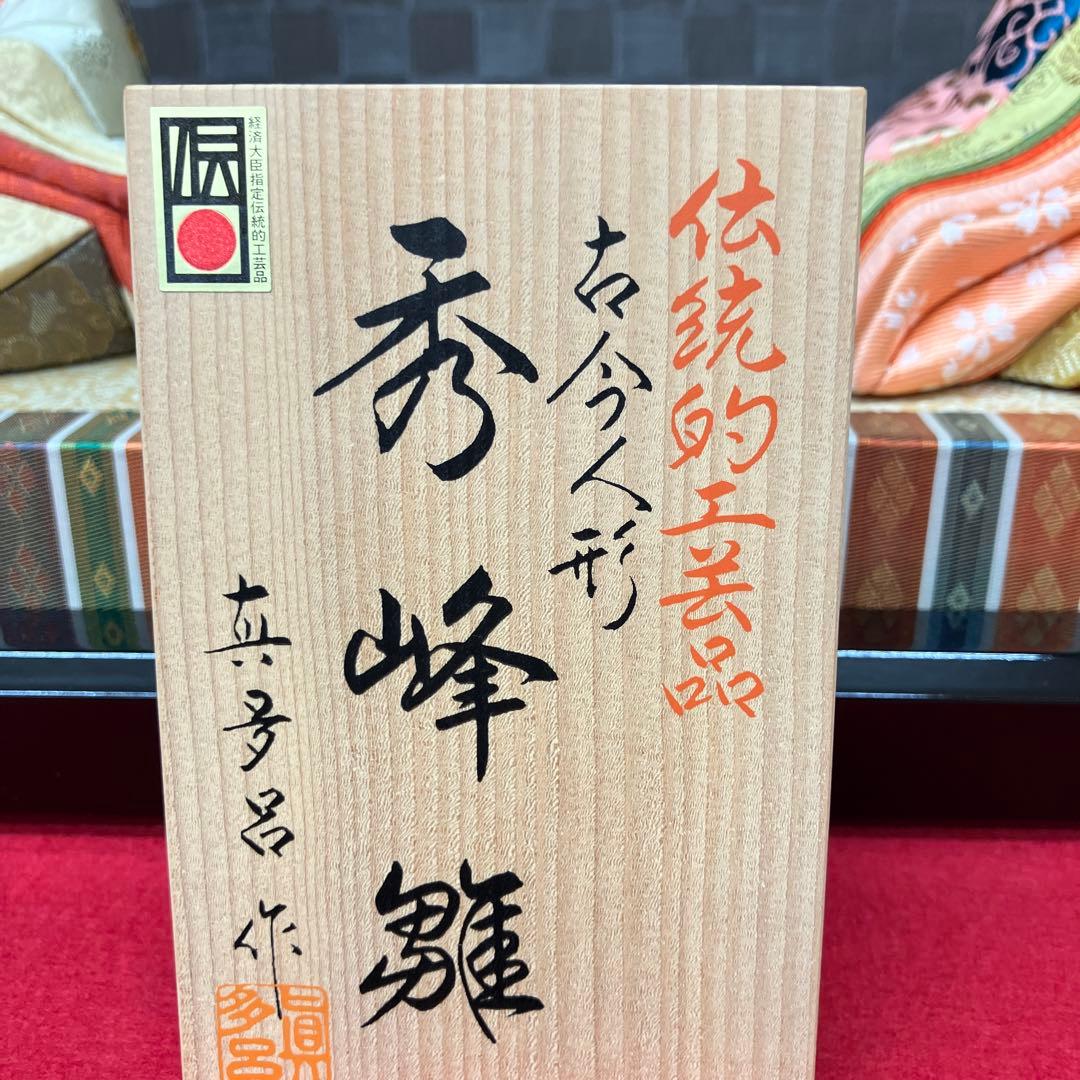 伝統的工芸品
古今人形
秀峰雛
真多呂作
眞多呂
伝
経済大臣指定伝統的工芸品